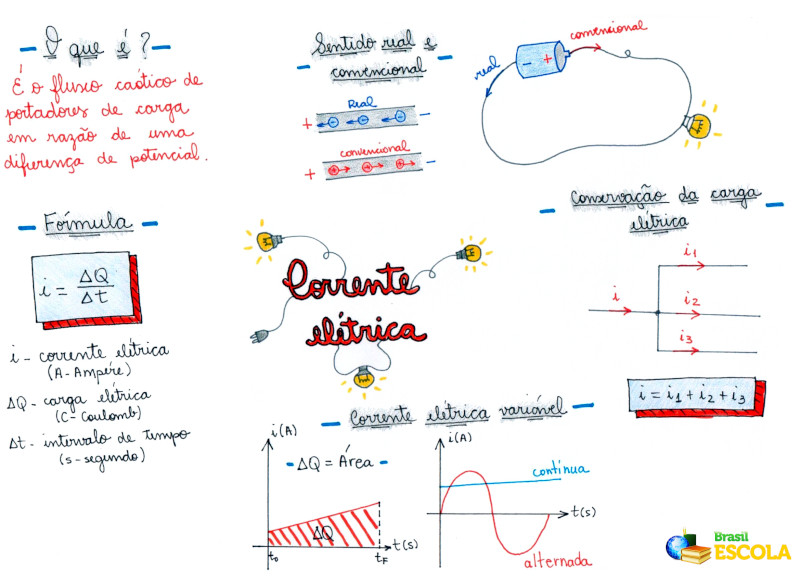 O que é?
É o fluxo caótico de
portadores de carga
em razão de uma
diferença de potencial.
Sentido real e
convencional
Real
+ - - - -
convencional
+ + + + -
real
- +
convencional
Fórmula
i = ΔQ/Δt
i - corrente elétrica
(A - Ampére)
ΔQ - carga elétrica
(C - Coulomb)
Δt - intervalo de tempo
(s - segundo)
Corrente
elétrica
Conservação da carga
elétrica
i
i1
i2
i3
i = i1 + i2 + i3
Corrente elétrica variável
i(A)
ΔQ = Área
ΔQ
t0
tF
t(s)
i(A)
contínua
t(s)
alternada
Brasil
ESCOLA